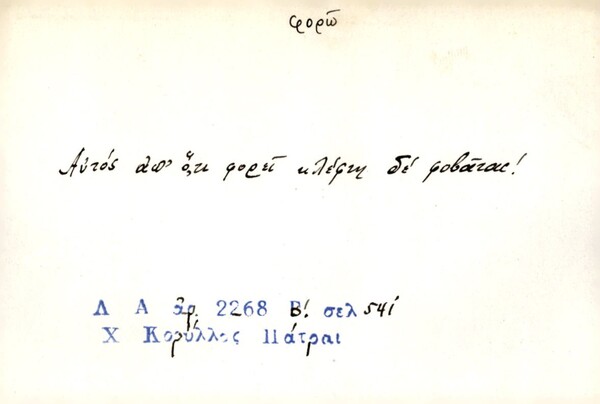 φορῶ
Αὐτός ἀπ' ὅ,τι φορεῖ κλέφτη δέ φοβᾶται!
Λ Α ἀρ. 2268 Β! σελ 541
Χ Κορύλλος Πάτραι